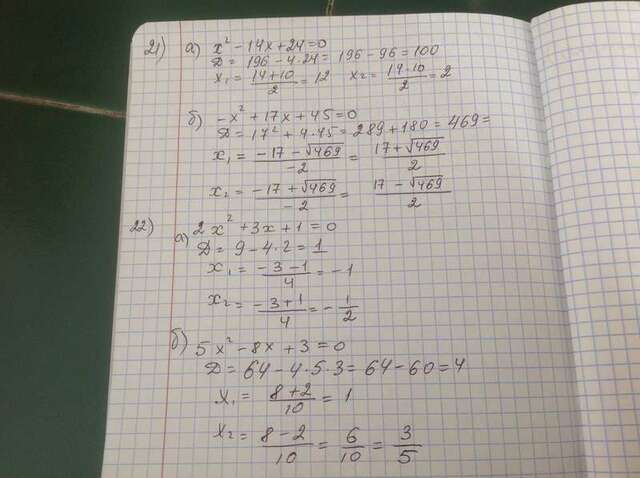 21) а) x² - 14x + 24 = 0
D = 196 - 4·24 = 196 - 96 = 100
x₁ = (14+10)/2 = 12 x₂ = (14-10)/2 = 2
б) -x² + 17x + 45 = 0
D = 17² + 4·45 = 289 + 180 = 469 =
x₁ = (-17 - √469)/(-2) = (17 + √469)/2
x₂ = (-17 + √469)/(-2) = (17 - √469)/2
22) а) 2x² + 3x + 1 = 0
D = 9 - 4·2 = 1
x₁ = (-3-1)/4 = -1
x₂ = (-3+1)/4 = -1/2
б) 5x² - 8x + 3 = 0
D = 64 - 4·5·3 = 64 - 60 = 4
x₁ = (8+2)/10 = 1
x₂ = (8-2)/10 = 6/10 = 3/5